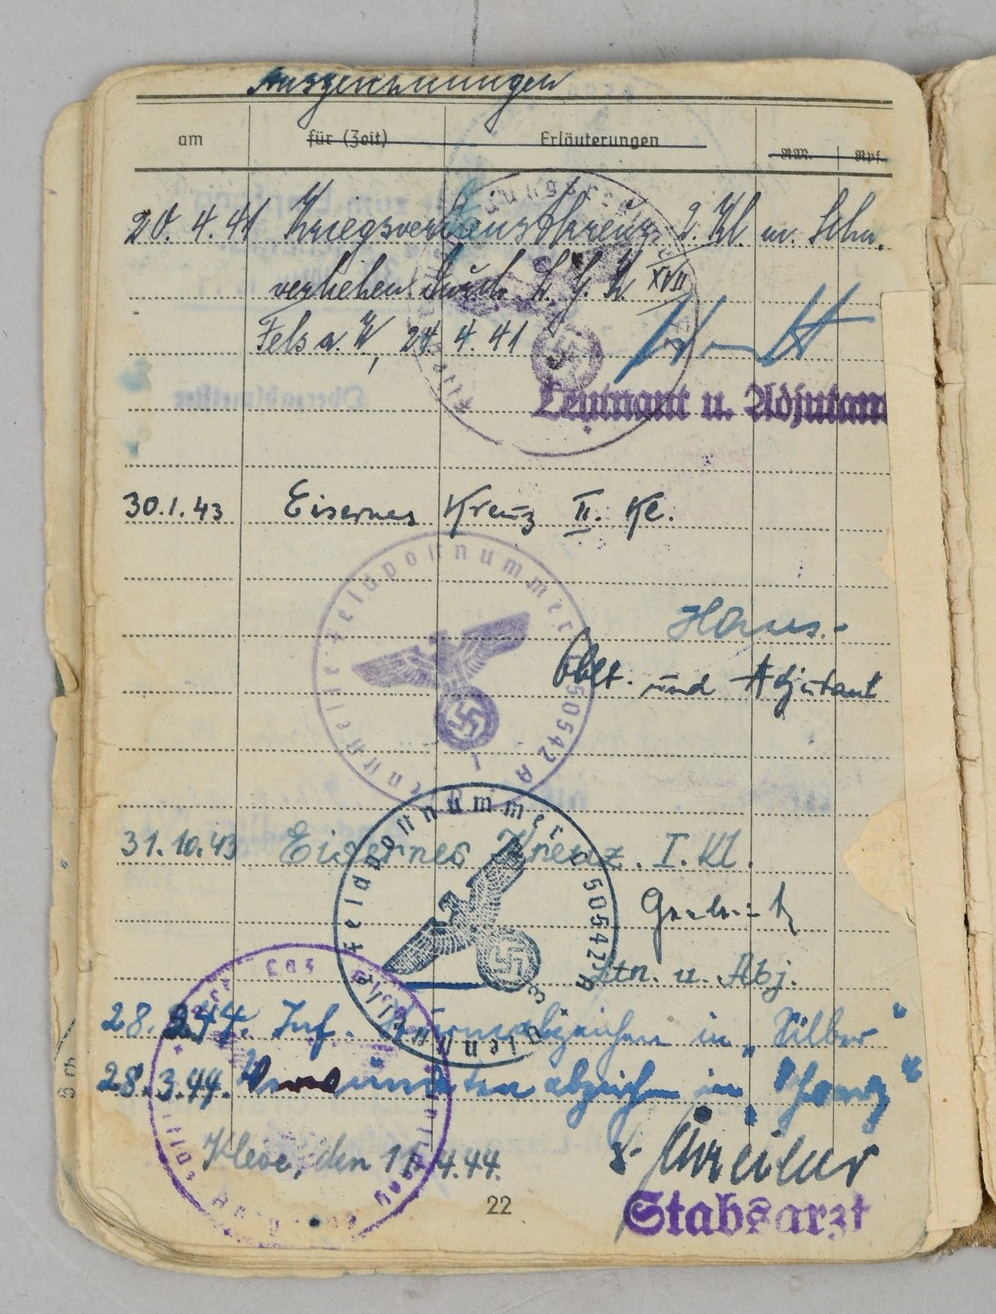 Auszeichnungen
am für (Zeit) Erläuterungen RM. Rpf.
20. 4. 41 Kriegsverdienstkreuz 2. Kl. m. Schw.
verliehen durch L. G. K. XVII
Fels a. W., 24. 4. 41
Leutnant u. Adjutant
30.1.43 Eisernes Kreuz II. Kl.
Feldpostnummer 50542 A
Oblt. und Adjutant
31.10.43 Eisernes Kreuz I. Kl.
Feldpostnummer 50542 A
Ltn. u. Adj.
28. 2.44. Inf. Sturmabzeichen in „Silber"
28.3.44. Verwundetenabzeichen in "Schwarz"
Kleve, den 11.4.44.
22
Stabsarzt